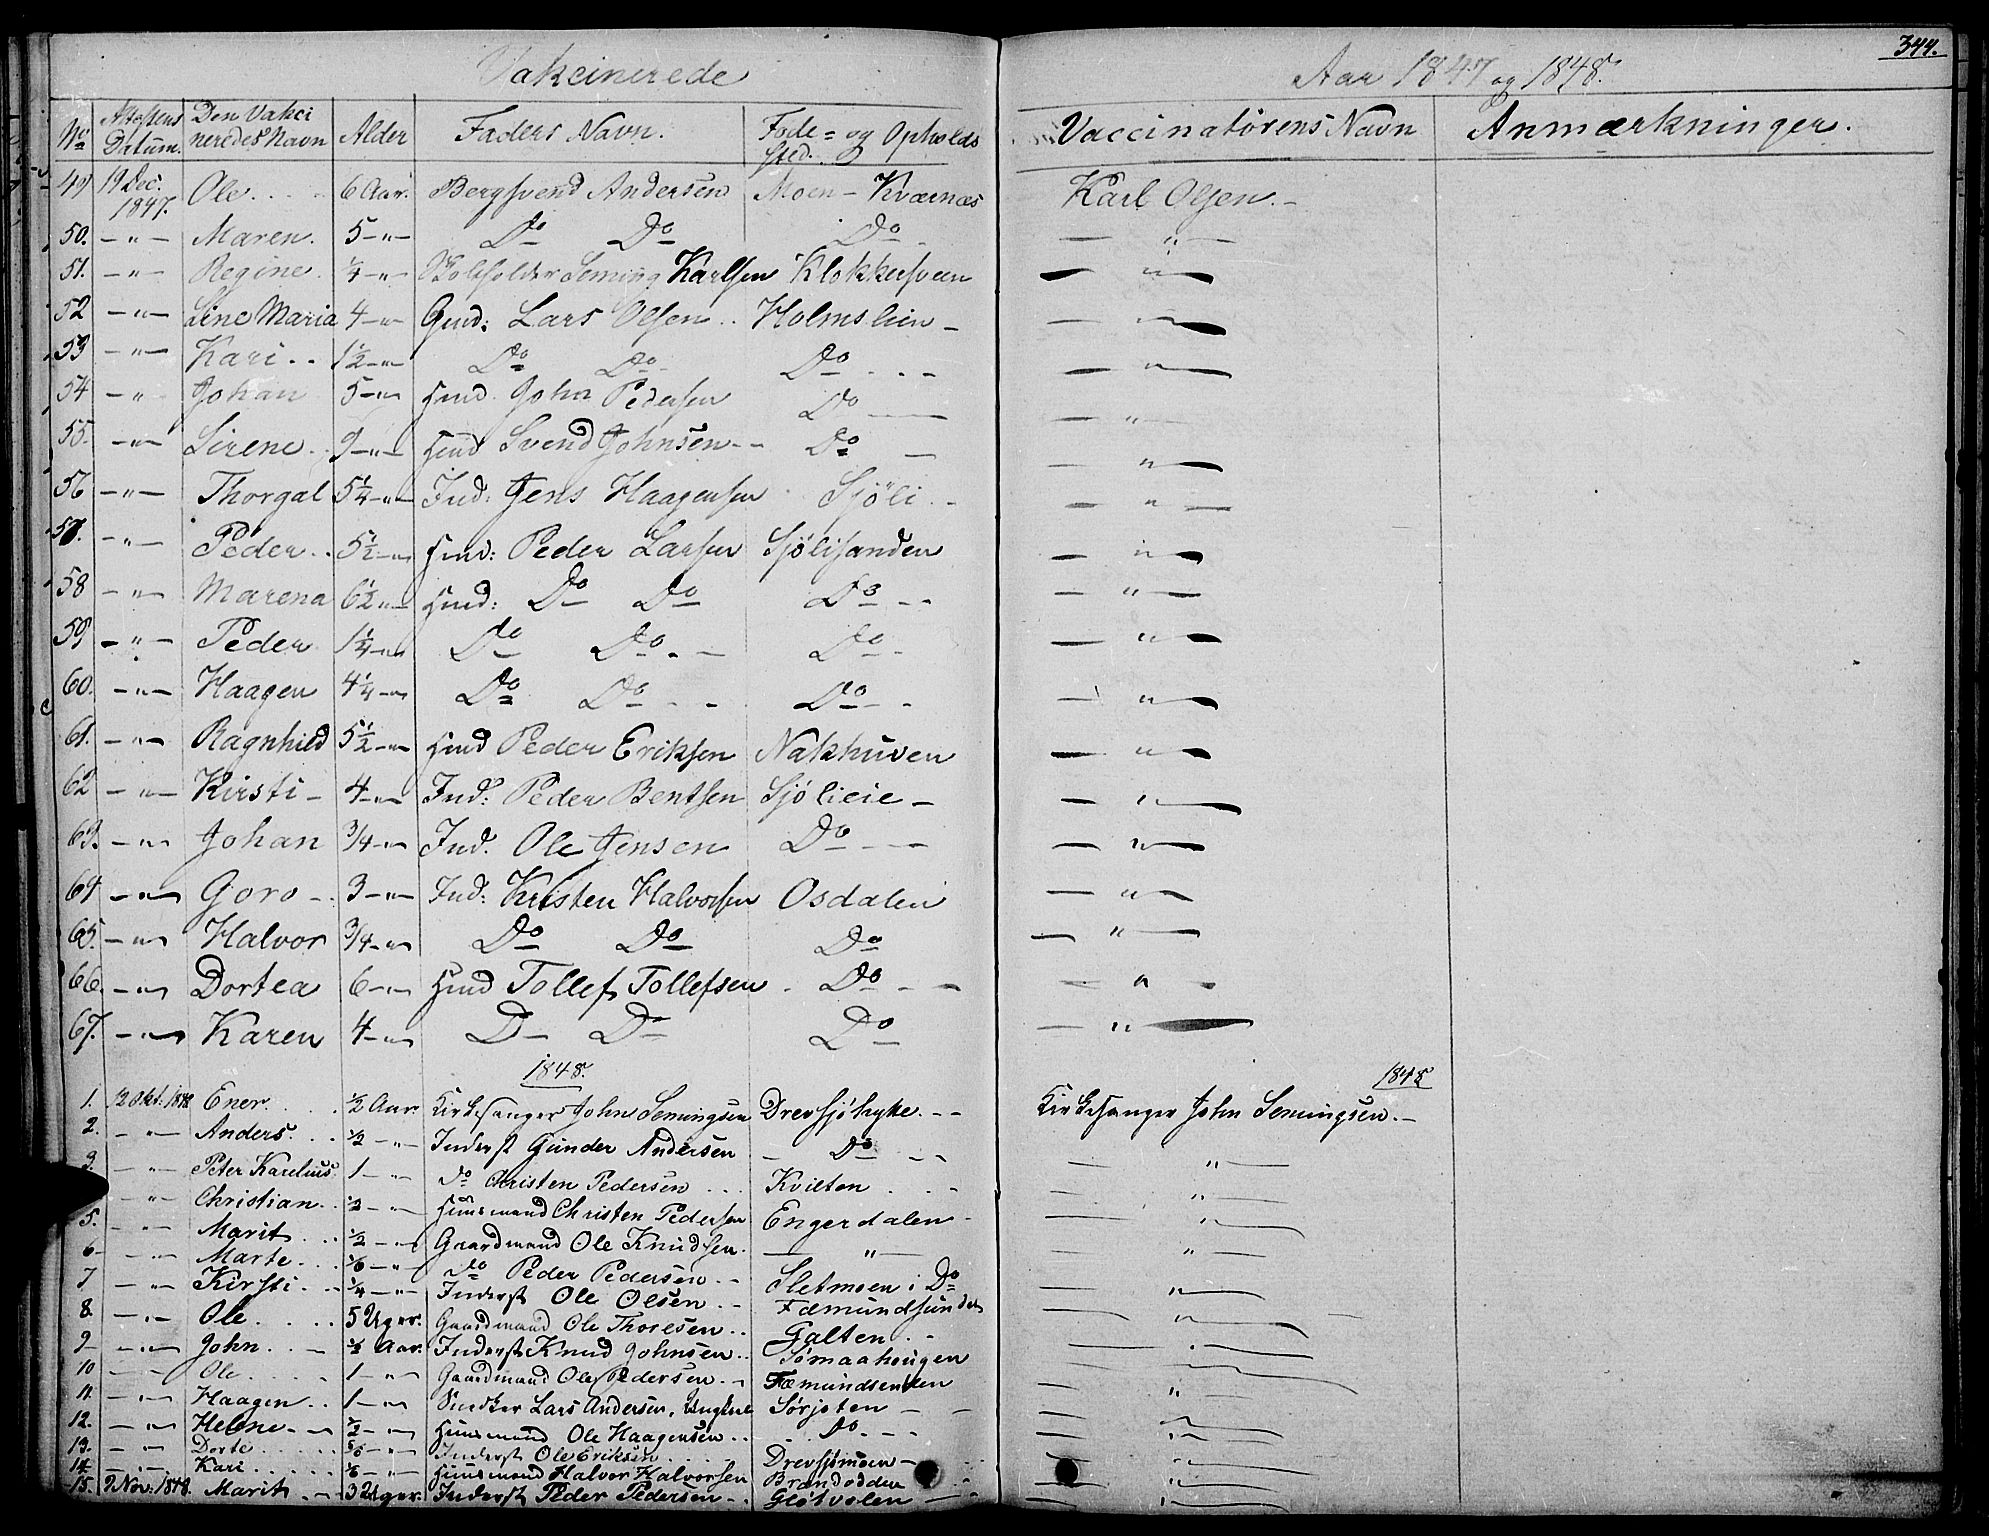 344.
Vakcinerede Aar 1847 og 1848.
No Attestens Datum. Den Vakcineredes Navn Alder Faders Navn. Føde- og Opholds Sted. Vaccinatørens Navn Anmærkninger.
49 19 Dec. 1847. Ole 6 Aar. Bergsvend Andersen Moen - Kværnæs Karl Olsen. -
50. -"- Maren. 5 -"- Do Do Do - " -
51. -"- Regine. 1/4 -"- Seming Karlsen Klokkersveen - " -
52 -"- Line Maria 4 -"- Gmd: Lars Olsen Holmslien - - " -
53 -"- Kari 1 1/2 -"- Do Do Do - " -
54 -"- Johan 5 -"- Hmd. John Pedersen Do - " -
55. -"- Sirene 9 -"- Hmd Svend Johnsen Do - " -
56 -"- Thorgal 5 1/4 -"- Ind: Jens Haagensen Sjöli - " -
57. -"- Peder 5 1/2 -"- Hmd: Peder Larsen Sjölisanden - " -
58 -"- Marena 6 1/2 -"- Hmd: Do Do Do - " -
59 -"- Peder 1 1/4 -"- Do Do Do - " -
60. -"- Haagen 4 1/4 -"- Do Do Do - " -
61. -"- Ragnhild 5 1/2 -"- Hmd Peder Eriksen Nakhuven - " -
62 -"- Kirsti - 4 -"- Ind: Peder Bentsen Sjölieie - - " -
63. -"- Johan 3/4 -"- Ind. Ole Jensen Do - " -
64 -"- Goro 3 -"- Ind: Kristen Halvorsen Osdalen - " -
65. -"- Halvor 3/4 -"- Do Do Do - " -
66. -"- Dortea 6 -"- Hmd Tollef Tollefsen Do - " -
67. -"- Karen 4 -"- D Do Do - " -
1848. 1848
1. 12 Okt. 1848 Ener 1/2 Aar. Kirkesanger John Semingsen Drevsjöhytte Kirkesanger John Semingsen. -
2. -"- Anders. 1/2 -"- Inderst Gunder Andersen Do - " -
3. -"- Peter Karelius 1 -"- Do Christen Pedersen Kvilten - " -
-"- Christian 1/2 -"- Huusmand Christen Pedersen Engerdalen - " -
5. -"- Marit 1/2 -"- Gaardmand Ole Knudsen. - " - - " -
6 -"- Marte 1/6 -"- Do Peder Pedersen Sletmoen i Do - " -
7 -"- Kirsti 1/4 -"- Inderst Ole Olsen Fæmundsundet - " -
8. -"- Ole 5 Uger. Gaardmand Ole Thoresen Galten - " -
9 -"- John 1/2 Aar. Inderst Knud Johnsen Sömaahougen - " -
10 -"- Ole 1 -"- Gaardmand Ole Pedersen Fæmundsenden - " -
11. -"- Haagen 1 -"- Lars Andersen, Sörjoten - " -
12. -"- Helene 1/2 -"- Huusmand Ole Haagensen Do - " -
13. -"- Dorte 5/6 -"- Inderst Ole Eriksen - " -
14. -"- Kari 1/6 -"- Huusmand Halvor Halvorsen Drevsjömoen Brændodden - " -
15. 9 Nov. 1848. Marit 3 Uger. Inderst Peder Pedersen Glötvolen - " -